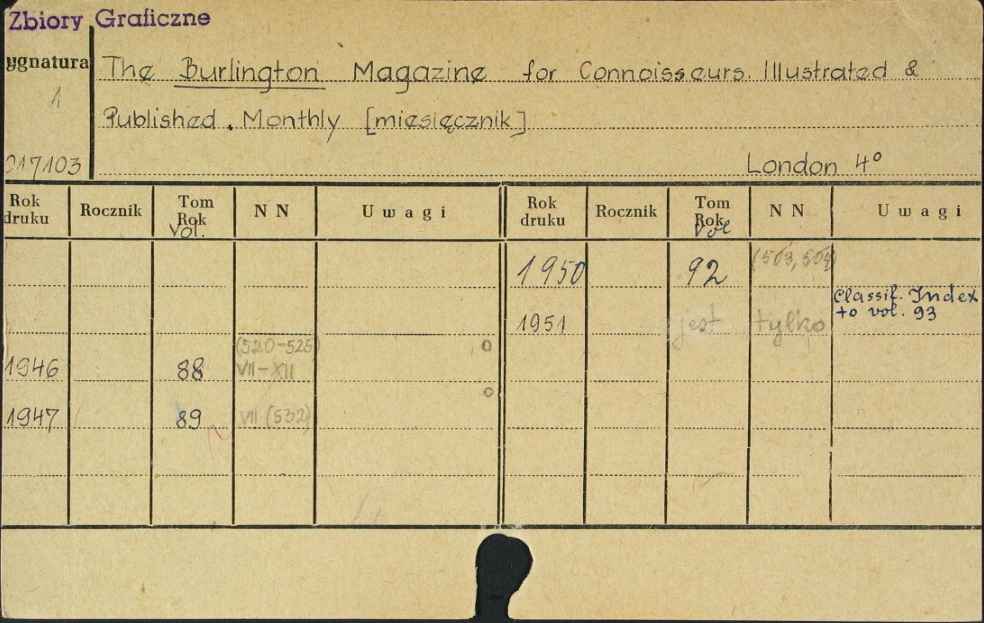 Zbiory Graficzne
ygnatura
The Burlington Magazine for Connoisseurs. Illustrated &
1
Published. Monthly [miesięcznik]
017103
London 4°
Rok druku Rocznik Tom Rok Vol. N N Uwagi Rok druku Rocznik Tom Rok Vol N N Uwagi
1950 92 (503, 504)
Classif. Index
to vol. 93
1951 jest tylko
(520-525)
1946 88 VII-XII
1947 89 VII (532)